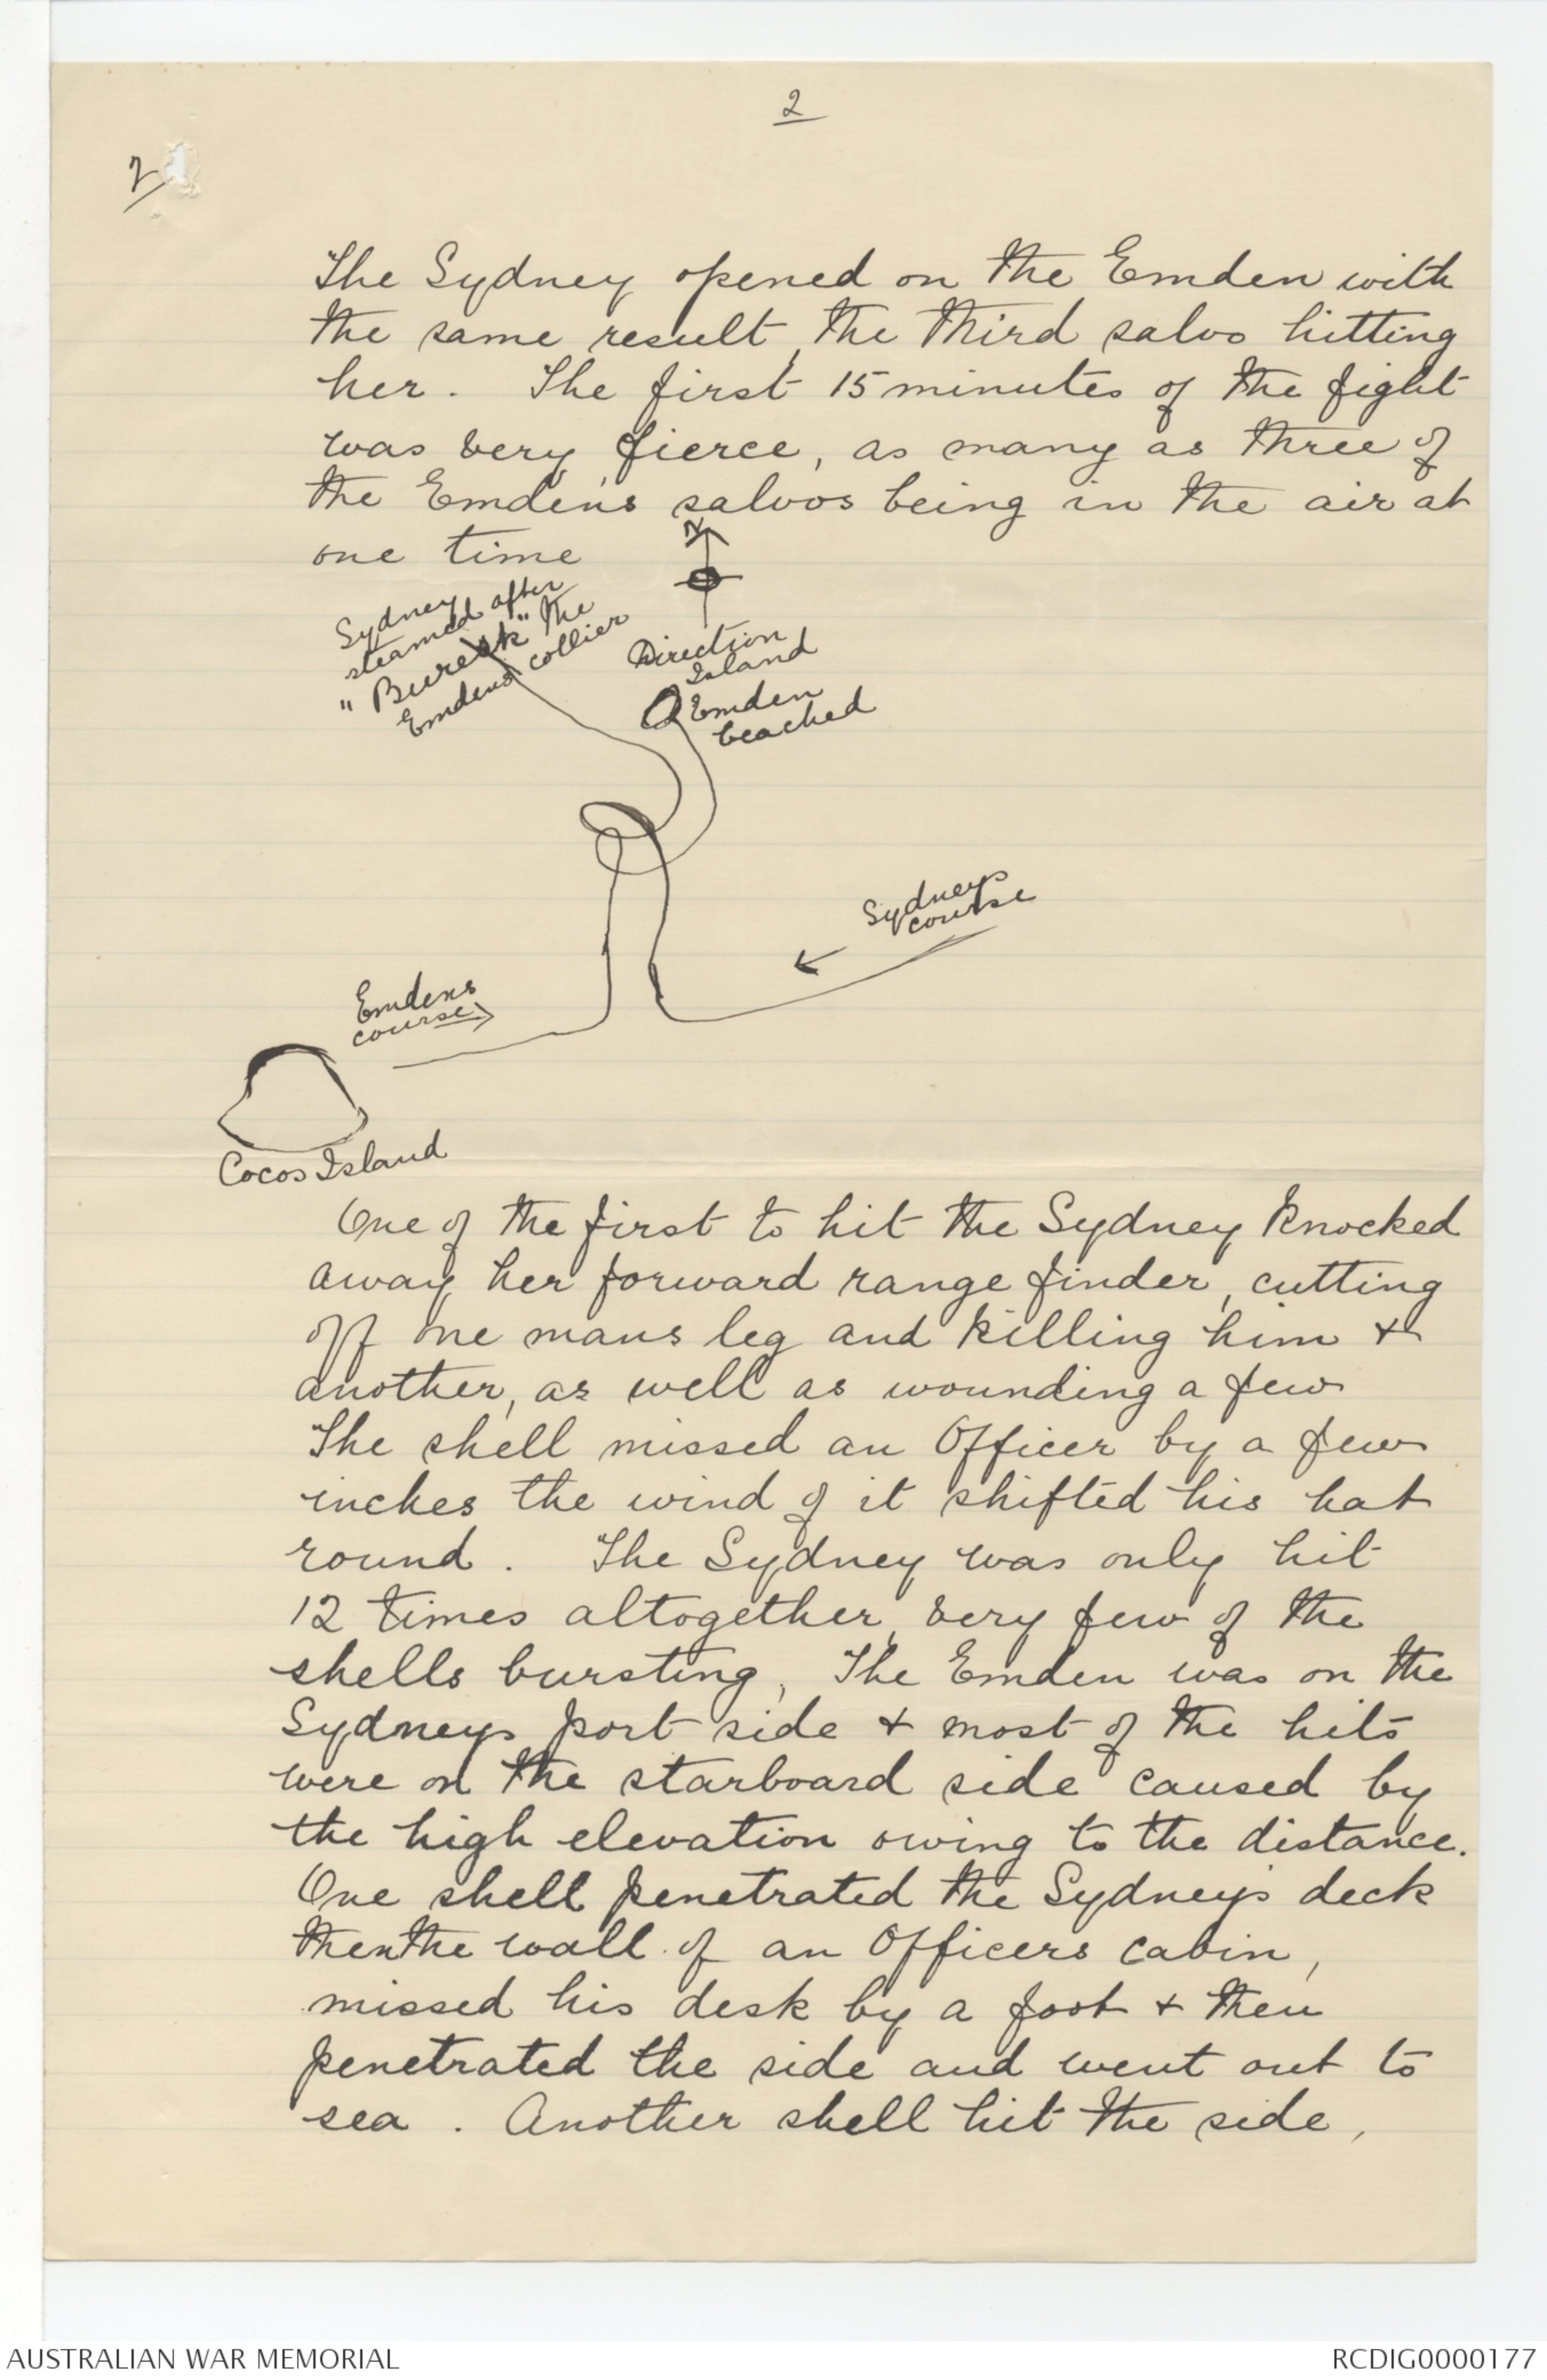 2
2
The Sydney opened on the Emden with
the same result, the third salvo hitting
her. The first 15 minutes of the fight
was very fierce, as many as three of
the Emden's salvos being in the air at
one time
N
Sydney
steamed after
"Buresk" the
Emdens collier
Direction
Island
Emden
beached
Sydneys
course
Emdens
course
Cocos Island
One of the first to hit the Sydney knocked
away her forward range finder, cutting
off one mans leg and killing him &
another, as well as wounding a few
The shell missed an Officer by a few
inches the wind of it shifted his hat
round. The Sydney was only hit
12 times altogether, very few of the
shells bursting, The Emden was on the
Sydneys port side & most of the hits
were on the starboard side caused by
the high elevation owing to the distance.
One shell penetrated the Sydney's deck
then the wall of an Officers cabin,
missed his desk by a foot & then
penetrated the side and went out to
sea. Another shell hit the side,
AUSTRALIAN WAR MEMORIAL
RCDIG0000177